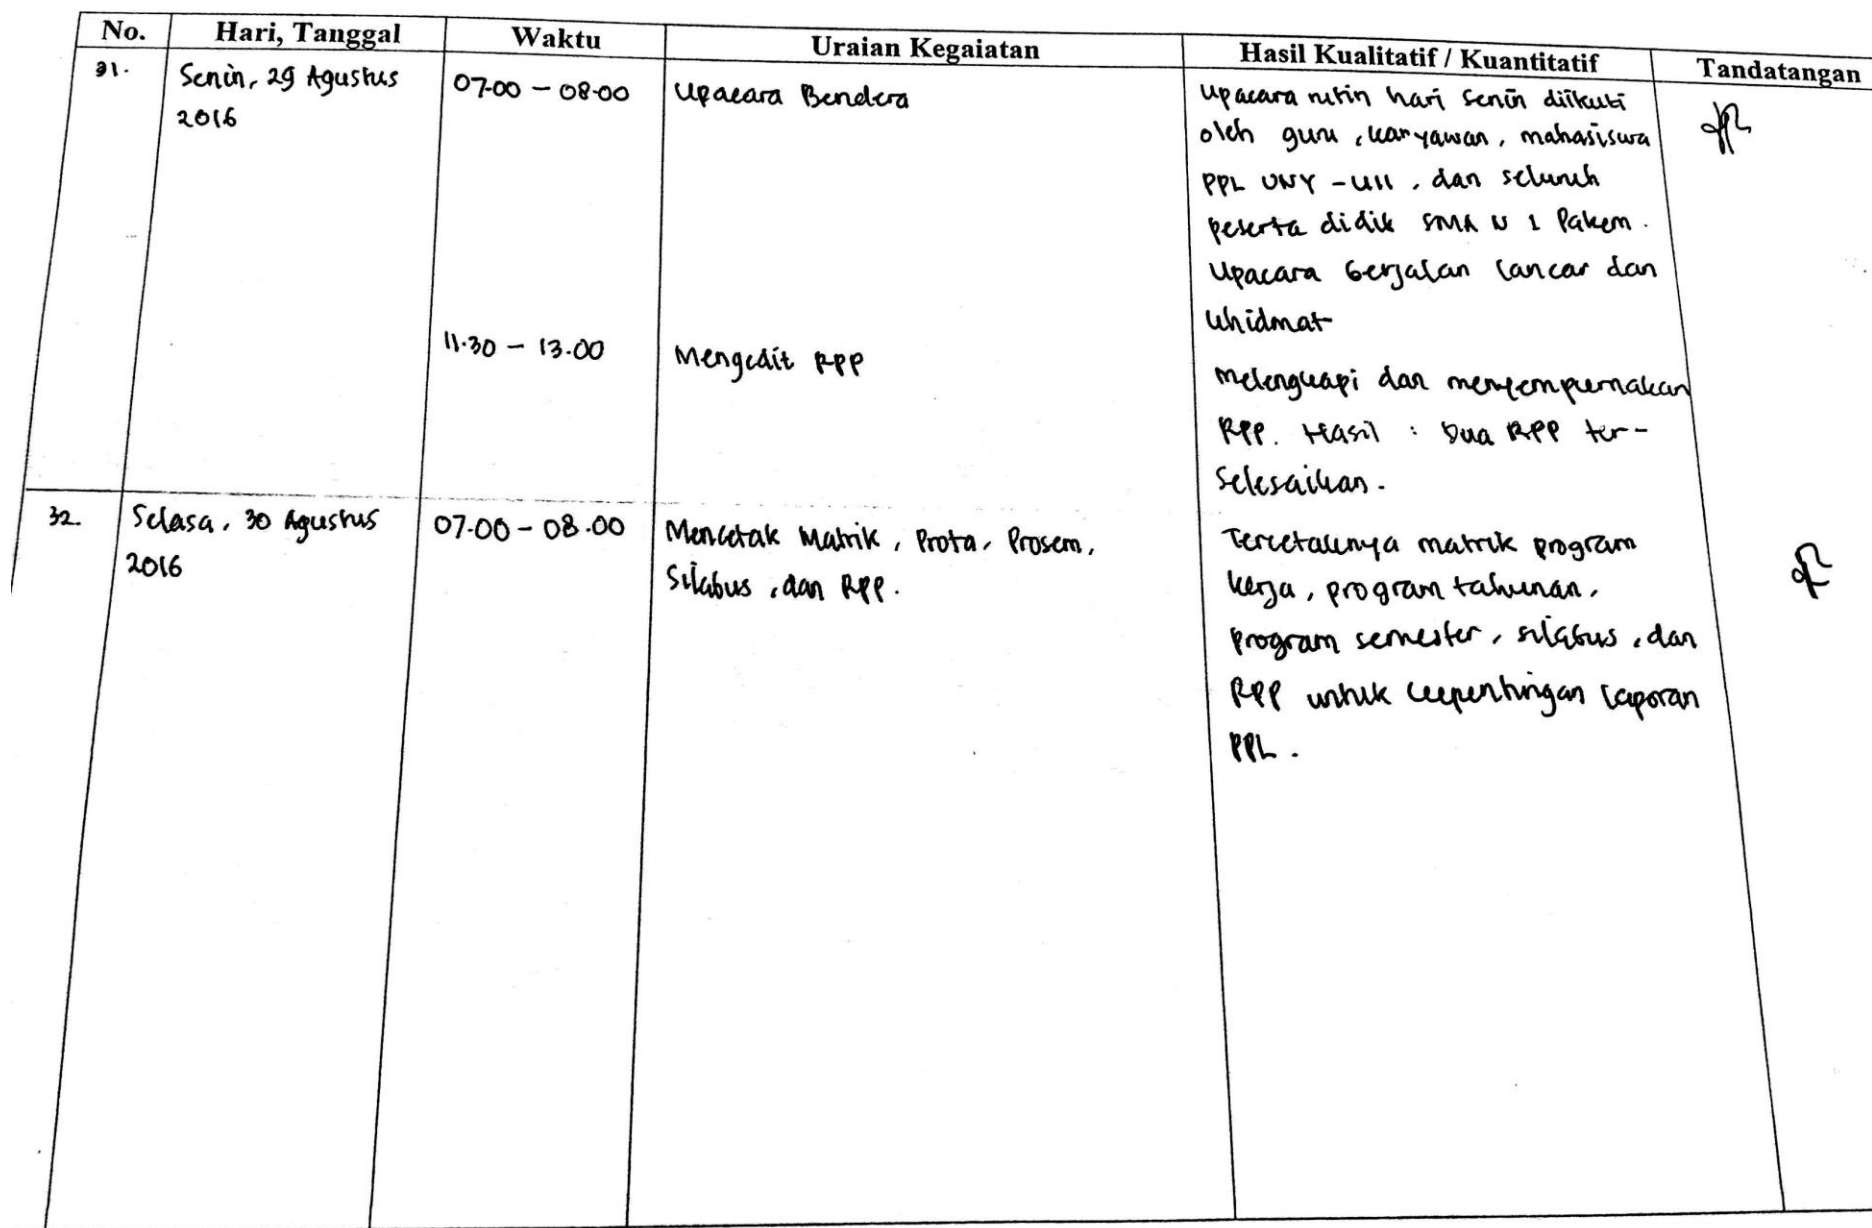 No. Hari, Tanggal Waktu Uraian Kegaiatan Hasil Kualitatif / Kuantitatif Tandatangan
31. Senin, 29 Agustus 2016
07.00 - 08.00
Upacara Bendera
Upacara rutin hari senin diikuti
oleh guru, karyawan, mahasiswa
PPL UNY - UII, dan seluruh
peserta didik SMA N 1 Pakem.
Upacara berjalan lancar dan
khidmat
11.30 - 13.00
Mengedit RPP
Melengkapi dan menyempurnakan
RPP. Hasil : Dua RPP ter-
selesaikan.
32. Selasa, 30 Agustus
2016
07.00 - 08.00
Mencetak Matrik, Prota, Prosem,
Silabus, dan RPP.
Tercetaknya matrik program
kerja, program tahunan,
program semester, silabus, dan
RPP untuk kepentingan laporan
PPL.